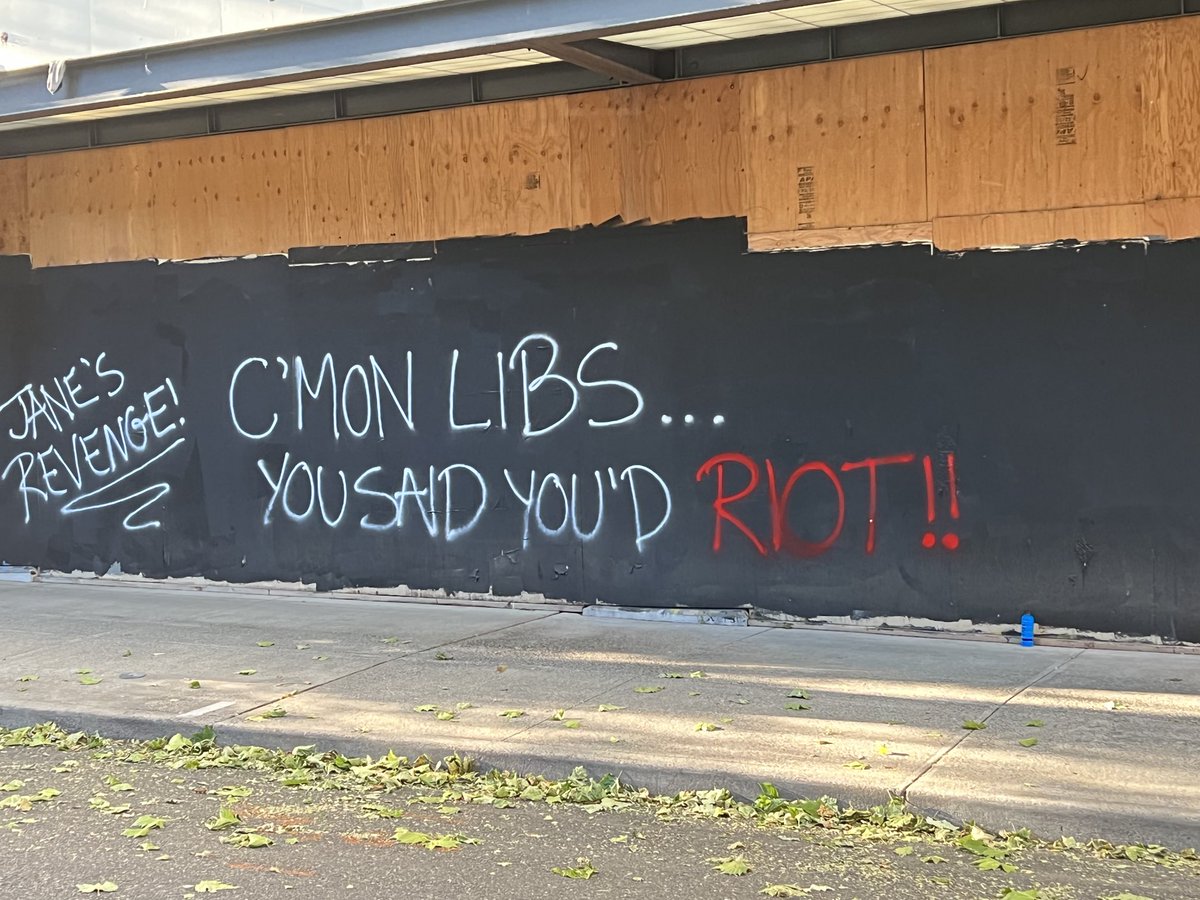 JANE'S
REVENGE!
C'MON LIBS...
YOU SAID YOU'D RIOT!!